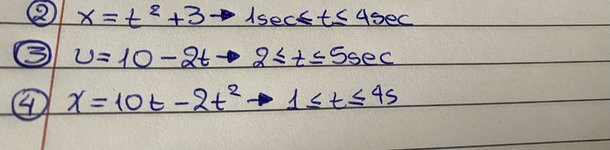 ② x = t² + 3 → 1sec ≤ t ≤ 4sec
③ υ = 10 - 2t → 2 ≤ t ≤ 5sec
④ x = 10t - 2t² → 1 ≤ t ≤ 4s